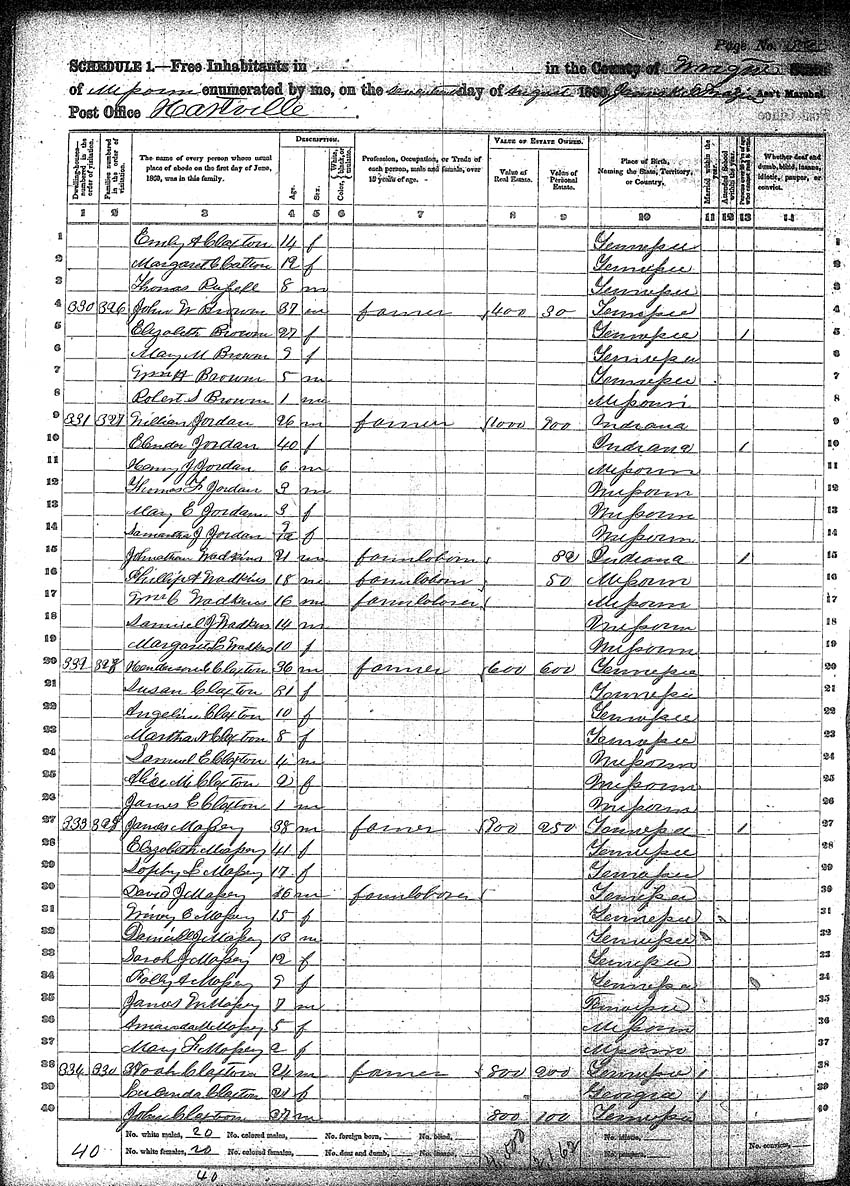 Page No.
SCHEDULE 1.—Free Inhabitants in in the County of Wright State
of Missouri enumerated by me, on the day of August 1860. Ass't Marshal.
Post Office Hartville
Dwelling-houses—numbered in the order of visitation. Families numbered in the order of visitation. The name of every person whose usual place of abode on the first day of June, 1860, was in this family. DESCRIPTION. Age. Sex. Color, White, black, or mulatto. Profession, Occupation, or Trade of each person, male and female, over 15 years of age. VALUE OF ESTATE OWNED. Value of Real Estate. Value of Personal Estate. Place of Birth, Naming the State, Territory, or Country. Married within the year. Attended School within the year. Whether deaf and dumb, blind, insane, idiotic, pauper, or convict.
1 2 3 4 5 6 7 8 9 10 11 12 13 14
1 Emily A Claxton 14 f Tennessee 1
2 Margaret C 12 f Tennessee 2
3 Thomas Russell 8 m Tennessee 3
4 330 326 John W Brown 37 m farmer 400 30 Tennessee 4
5 Elizabeth Brown 27 f Tennessee 1 5
6 Mary M Brown 9 f Tennessee 6
7 Wm H Brown 5 m Tennessee 7
8 Robert S Brown 1 m Missouri 8
9 331 327 William Jordan 26 m farmer 1000 900 Indiana 9
10 Elender Jordan 40 f Indiana 1 10
11 Henry J Jordan 6 m Missouri 11
12 Thomas F Jordan 3 m Missouri 12
13 Mary E Jordan 3 f Missouri 13
14 Samantha J Jordan f Missouri 14
15 Johnathan Wadkins 21 m farmlaborer 82 Indiana 1 15
16 Phillip A Wadkins 18 m farmlaborer 50 Missouri 16
17 Wm C Wadkins 16 m farmlaborer Missouri 17
18 Samuel J Wadkins 14 m Missouri 18
19 Margaret E Wadkins 10 f Missouri 19
20 332 328 Henderson Claxton 36 m farmer 600 600 Tennessee 20
21 Susan Claxton 31 f Tennessee 21
22 Angeline Claxton 10 f Tennessee 22
23 Martha A Claxton 8 f Tennessee 23
24 Samuel E Claxton 4 m Missouri 24
25 Alice M Claxton 2 f Missouri 25
26 James E Claxton 1 m Missouri 26
27 333 329 James Massey 38 m farmer 800 250 Tennessee 1 27
28 Elizabeth Massey 41 f Tennessee 28
29 Sophy L Massey 17 f Tennessee 29
30 David J Massey 16 m farmlaborer Tennessee 30
31 Winny C Massey 15 f Tennessee 31
32 Daniel J Massey 13 m Tennessee 32
33 Sarah J Massey 12 f Tennessee 33
34 Polly A Massey 9 f Tennessee 34
35 James W Massey 7 m Tennessee 35
36 Amanda M Massey 5 f Missouri 36
37 Mary F Massey 2 f Missouri 37
38 334 330 Noah Claxton 24 m farmer 800 200 Tennessee 1 38
39 Lucinda Claxton 21 f Georgia 1 39
40 John Claxton 27 m 800 100 Tennessee 40
40 No. white males, 20 No. colored males, No. foreign born, No. blind, No. idiotic,
No. white females, 20 No. colored females, No. deaf and dumb, No. insane, No. paupers, No. convicts,
40